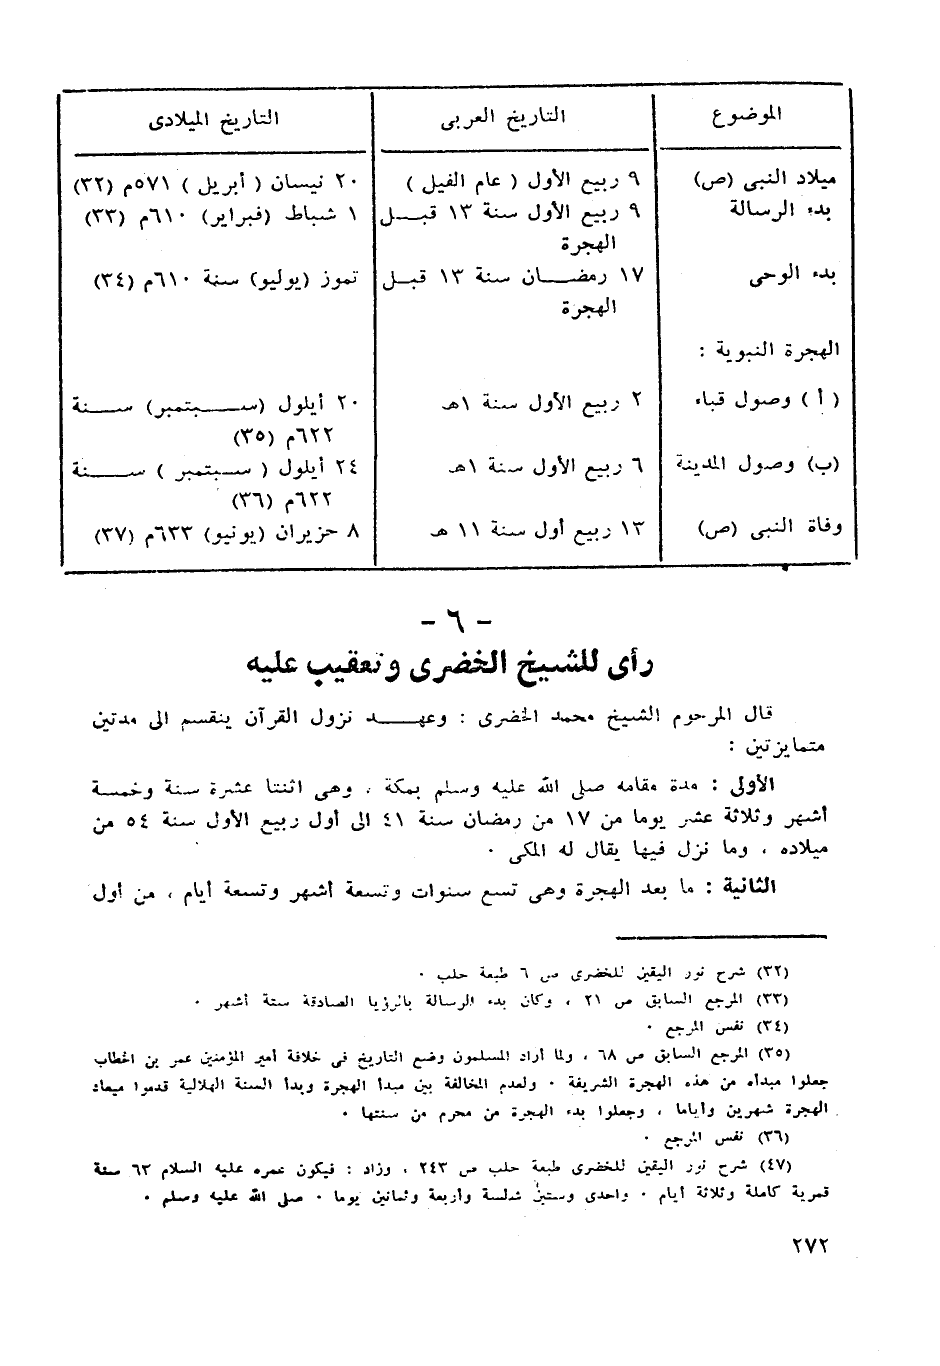 الموضوع التاريخ العربى التاريخ الميلادى
ميلاد النبى (ص) ٩ ربيع الأول ( عام الفيل ) ٢٠ نيسان ( أبريل ) ٥٧١م (٣٢)
بدء الرسالة ٩ ربيع الأول سنة ١٣ قبــل ١ شباط (فبراير) ٦١٠م (٣٣)
الهجرة
بدء الوحى ١٧ رمضــان سنة ١٣ قبــل تموز (يوليو) سنة ٦١٠م (٣٤)
الهجرة
الهجرة النبوية :
( أ ) وصول قباء ٢ ربيع الأول سنة ١هـ ٢٠ أيلول (ســبتمبر) ســنة
٦٢٢م (٣٥)
(ب) وصول المدينة ٦ ربيع الأول سنة ١هـ ٢٤ أيلول ( ســبتمبر ) ســنة
٦٢٢م (٣٦)
وفاة النبى (ص) ١٣ ربيع أول سنة ١١ هـ ٨ حزيران (يونيو) ٦٣٣م (٣٧)
- ٦ -
رأى للشيخ الخضرى وتعقيب عليه
قال المرحوم الشيخ محمد الخضرى : وعهــد نزول القرآن ينقسم الى مدتين
متمايزتين :
الأولى : مدة مقامه صلى الله عليه وسلم بمكة ، وهى اثنتا عشرة سنة وخمسة
أشهر وثلاثة عشر يوما من ١٧ من رمضان سنة ٤١ الى أول ربيع الأول سنة ٥٤ من
ميلاده ، وما نزل فيها يقال له المكى ٠
الثانية : ما بعد الهجرة وهى تسع سنوات وتسعة أشهر وتسعة أيام ، من أول
(٣٢) شرح نور اليقين للخضرى ص ٦ طبعة حلب ٠
(٣٣) المرجع السابق ص ٢١ ، وكان بدء الرسالة بالرؤيا الصادقة ستة أشهر ٠
(٣٤) نفس المرجع ٠
(٣٥) المرجع السابق ص ٦٨ ، ولما أراد المسلمون وضع التاريخ فى خلافة أمير المؤمنين عمر بن الخطاب
جعلوا مبدأه من هذه الهجرة الشريفة ٠ ولعدم المخالفة بين مبدأ الهجرة وبدأ السنة الهلالية قدموا ميعاد
الهجرة شهرين وأياما ، وجعلوا بدء الهجرة من محرم من سنتها ٠
(٣٦) نفس المرجع ٠
(٤٧) شرح نور اليقين للخضرى طبعة حلب ص ٢٤٣ ، وزاد : فيكون عمره عليه السلام ٦٣ سنة
قمرية كاملة وثلاثة أيام ٠ واحدى وستين شمسية وأربعة وثمانين يوما ٠ صلى الله عليه وسلم ٠
٢٧٢